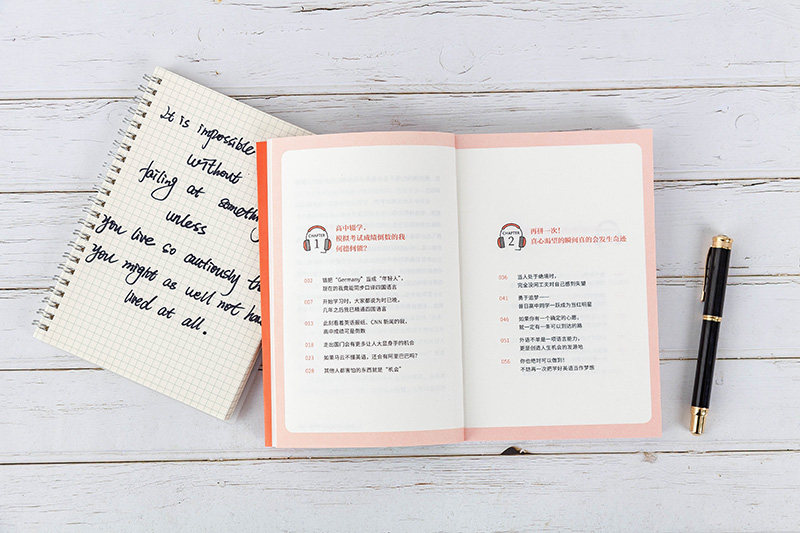 It is impossible
without
failing at something
unless
you live so cautiously
you might as well not
lived at all.
CHAPTER
1
高中辍学,
模拟考试成绩倒数的我
何德何能?
002 错把“Germany”当成“年轻人”,
现在的我竟能同步口译四国语言
007 开始学习时,大家都说为时已晚,
几年之后我已精通四国语言
013 此刻看着英语报纸、CNN 新闻的我,
高中成绩可是倒数
018 走出国门会有更多让人大显身手的机会
023 如果马云不懂英语,还会有阿里巴巴吗?
028 其他人都害怕的东西就是“机会”
CHAPTER
2
再拼一次!
真心渴望的瞬间真的会发生奇迹
036 当人处于绝境时,
完全没闲工夫对自己感到失望
041 勇于追梦——
昔日高中同学一跃成为当红明星
046 如果你有一个确定的心愿,
就一定有一条可以到达的路
051 外语不单是一项语言能力,
更是创造人生机会的发源地
056 你也绝对可以做到!
不妨再一次把学好英语当作梦想